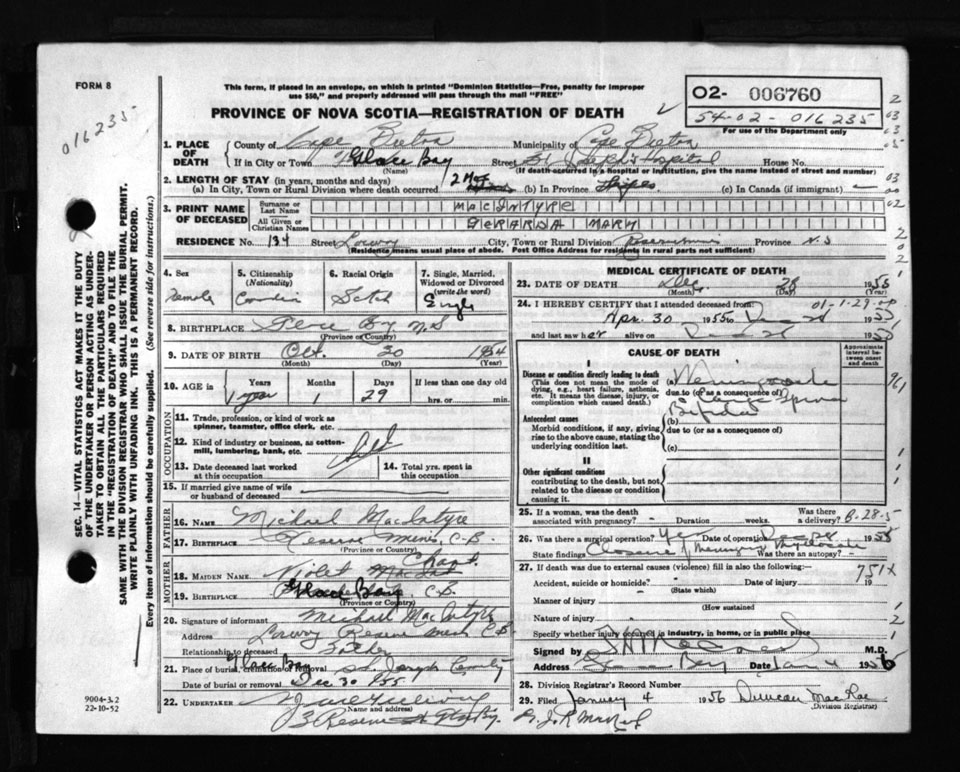 FORM 8
016235
This form, if placed in an envelope, on which is printed "Dominion Statistics—Free, penalty for improper
use $50," and properly addressed will pass through the mail "FREE"
PROVINCE OF NOVA SCOTIA—REGISTRATION OF DEATH
O2- 006760
54-02-016235
For use of the Department only
1. PLACE OF DEATH
County of Cape Breton Municipality of Cape Breton
If in City or Town Glace Bay Street St. Joseph's Hospital House No.
(Name) (If death occurred in a hospital or institution, give the name instead of street and number)
2. LENGTH OF STAY (in years, months and days)
(a) In City, Town or Rural Division where death occurred (b) In Province (c) In Canada (if immigrant) —
3. PRINT NAME OF DECEASED
Surname or Last Name MACINTYRE
All Given or Christian Names GERARDA MARY
RESIDENCE No. 134 Street Lowry City, Town or Rural Division Reserve Mines Province N.S
(Residence means usual place of abode. Post Office Address for residents in rural parts not sufficient)
4. Sex Female
5. Citizenship (Nationality)
6. Racial Origin Scotch
7. Single, Married, Widowed or Divorced (write the word) Single
8. BIRTHPLACE N.S
(Province or Country)
9. DATE OF BIRTH Oct. 30 1954
(Month) (Day) (Year)
10. AGE in Years 1 year Months 1 Days 29 If less than one day old hrs. or min.
OCCUPATION
11. Trade, profession, or kind of work as spinner, teamster, office clerk, etc.
12. Kind of industry or business, as cotten-mill, lumbering, bank, etc.
13. Date deceased last worked at this occupation
14. Total yrs. spent in this occupation
15. If married give name of wife or husband of deceased
FATHER
16. NAME Michael MacIntyre
17. BIRTHPLACE Reserve Mines, C.B.
(Province or Country)
MOTHER
18. MAIDEN NAME Violet
19. BIRTHPLACE Glace Bay, C.B
(Province or Country)
20. Signature of informant Michael MacIntyre
Address Lowry Reserve Mines C.B.
Relationship to deceased Father
21. Place of burial, cremation or removal Glace Bay St. Joseph
Date of burial or removal Dec 30 1955
22. UNDERTAKER
(Name and address)
Reserve St Glace Bay
MEDICAL CERTIFICATE OF DEATH
23. DATE OF DEATH Dec 28 1955
(Month) (Day) (Year)
24. I HEREBY CERTIFY that I attended deceased from 01-1-29-
Apr. 30 1955 to Dec 28 1955
and last saw her alive on Dec 28 1955
CAUSE OF DEATH
Approximate interval between onset and death
I
Disease or condition directly leading to death
(This does not mean the mode of dying, e.g., heart failure, asthenia, etc. It means the disease, injury, or complication which caused death.)
(a)
due to (or as a consequence of)
Antecedent causes
Morbid conditions, if any, giving rise to the above cause, stating the underlying condition last.
(b) Bifida
due to (or as a consequence of)
(c)
II
Other significant conditions contributing to the death, but not related to the disease or condition causing it.
25. If a woman, was the death associated with pregnancy? - Duration weeks. Was there a delivery?
26. Was there a surgical operation? Yes Date of operation 1955
State findings Closure of Was there an autopsy? -
27. If death was due to external causes (violence) fill in also the following:
751X
Accident, suicide or homicide? - Date of injury 19
(State which)
Manner of injury
(How sustained
Nature of injury
Specify whether injury occurred in industry, in home, or in public place
Signed by M.D.
Address Glace Bay Date Jan 4 1956
28. Division Registrar's Record Number
29. Filed January 4 1956 Duncan MacRae
(Division Registrar)
9004-3.2
22-10-52
SEC. 14—VITAL STATISTICS ACT MAKES IT THE DUTY
OF THE UNDERTAKER OR PERSON ACTING AS UNDER-
TAKER TO OBTAIN ALL THE PARTICULARS REQUIRED
IN THE "REGISTRATION OF DEATH" AND TO FILE THE
SAME WITH THE DIVISION REGISTRAR WHO SHALL ISSUE THE BURIAL PERMIT.
WRITE PLAINLY WITH UNFADING INK. THIS IS A PERMANENT RECORD.
Every item of information should be carefully supplied. (See reverse side for instructions.)